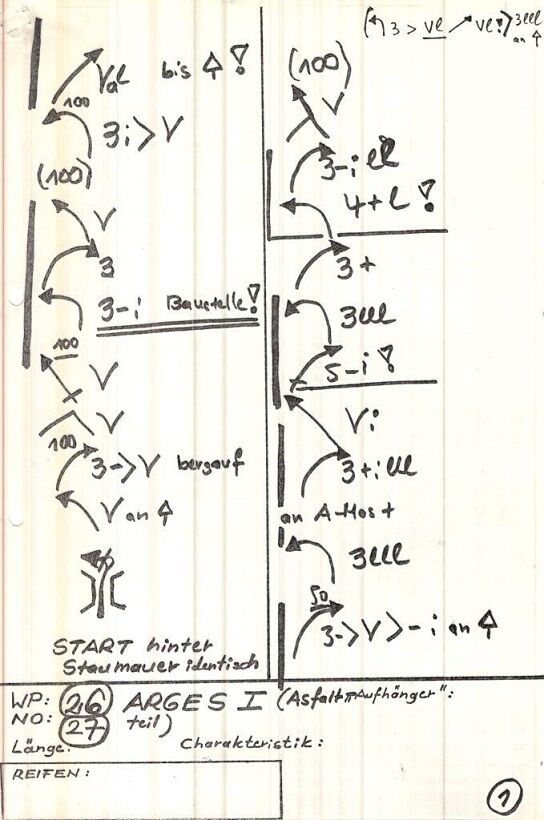 Val bis !
100
3i > V
(100)
V
3
3-i Baustelle!
100
V
V
100
3-> V bergauf
V an
START hinter
Staumauer identisch
( 3 > vl vl!) 3lll
an
(100)
V
3-i ll
4+l !
3+
3lll
5-i !
Vi
3+i lll
an A-Mast
3lll
50
3-> V > -i an
WP: 26 ARGES I (Asfalt- "Aufhänger":
NO: 27 teil)
Länge: Charakteristik:
REIFEN:
1